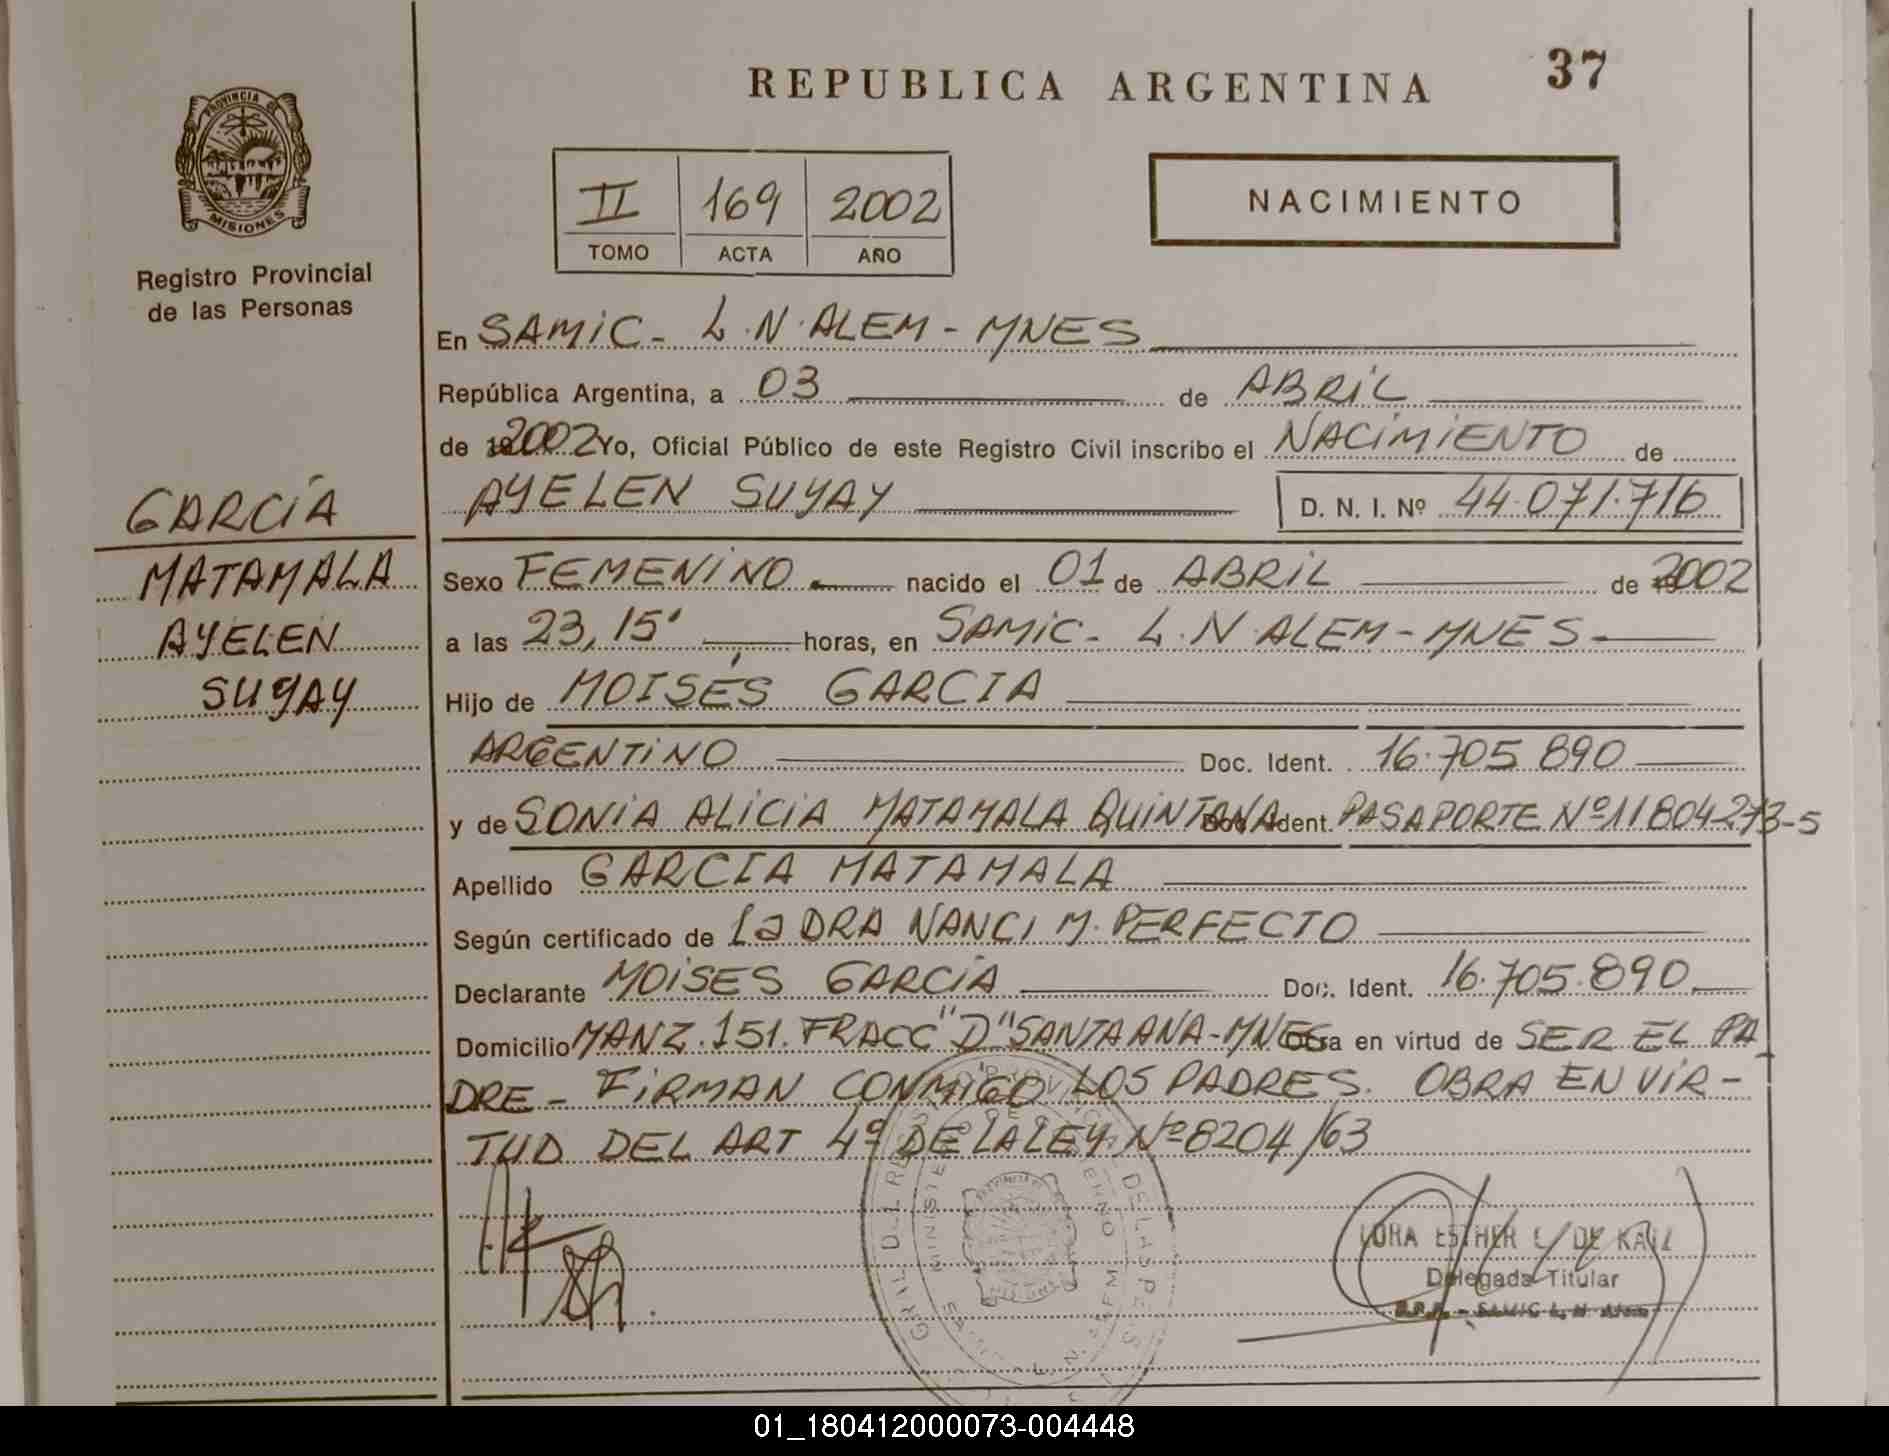 REPUBLICA ARGENTINA
37
PROVINCIA DE
MISIONES
Registro Provincial
de las Personas
II 169 2002
TOMO ACTA AÑO
NACIMIENTO
En SAMIC - L.N.ALEM - MNES
República Argentina, a 03 de ABRIL
de 2002 Yo, Oficial Público de este Registro Civil inscribo el NACIMIENTO de
AYELEN SUYAY D. N. I. Nº 44.071.716
GARCÍA
MATAMALA
AYELEN
SUYAY
Sexo FEMENINO nacido el 01 de ABRIL de 2002
a las 23,15' horas, en SAMIC - L.N.ALEM - MNES
Hijo de MOISÉS GARCIA
ARGENTINO Doc. Ident. 16.705.890
y de SONIA ALICIA MATAMALA QUINTANA Doc. Ident. PASAPORTE Nº 11804273-5
Apellido GARCIA MATAMALA
Según certificado de La DRA NANCI M. PERFECTO
Declarante MOISES GARCÍA Doc. Ident. 16.705.890
Domicilio MANZ.151.FRACC "D" SANTA ANA-MNES Obra en virtud de SER EL PA
DRE - FIRMAN CONMIGO LOS PADRES. OBRA EN VIR-
TUD DEL ART 4º DE LA LEY Nº 8204/63
ESTHER
Delegada Titular
SAMIC L. N. Alem
01_180412000073-004448